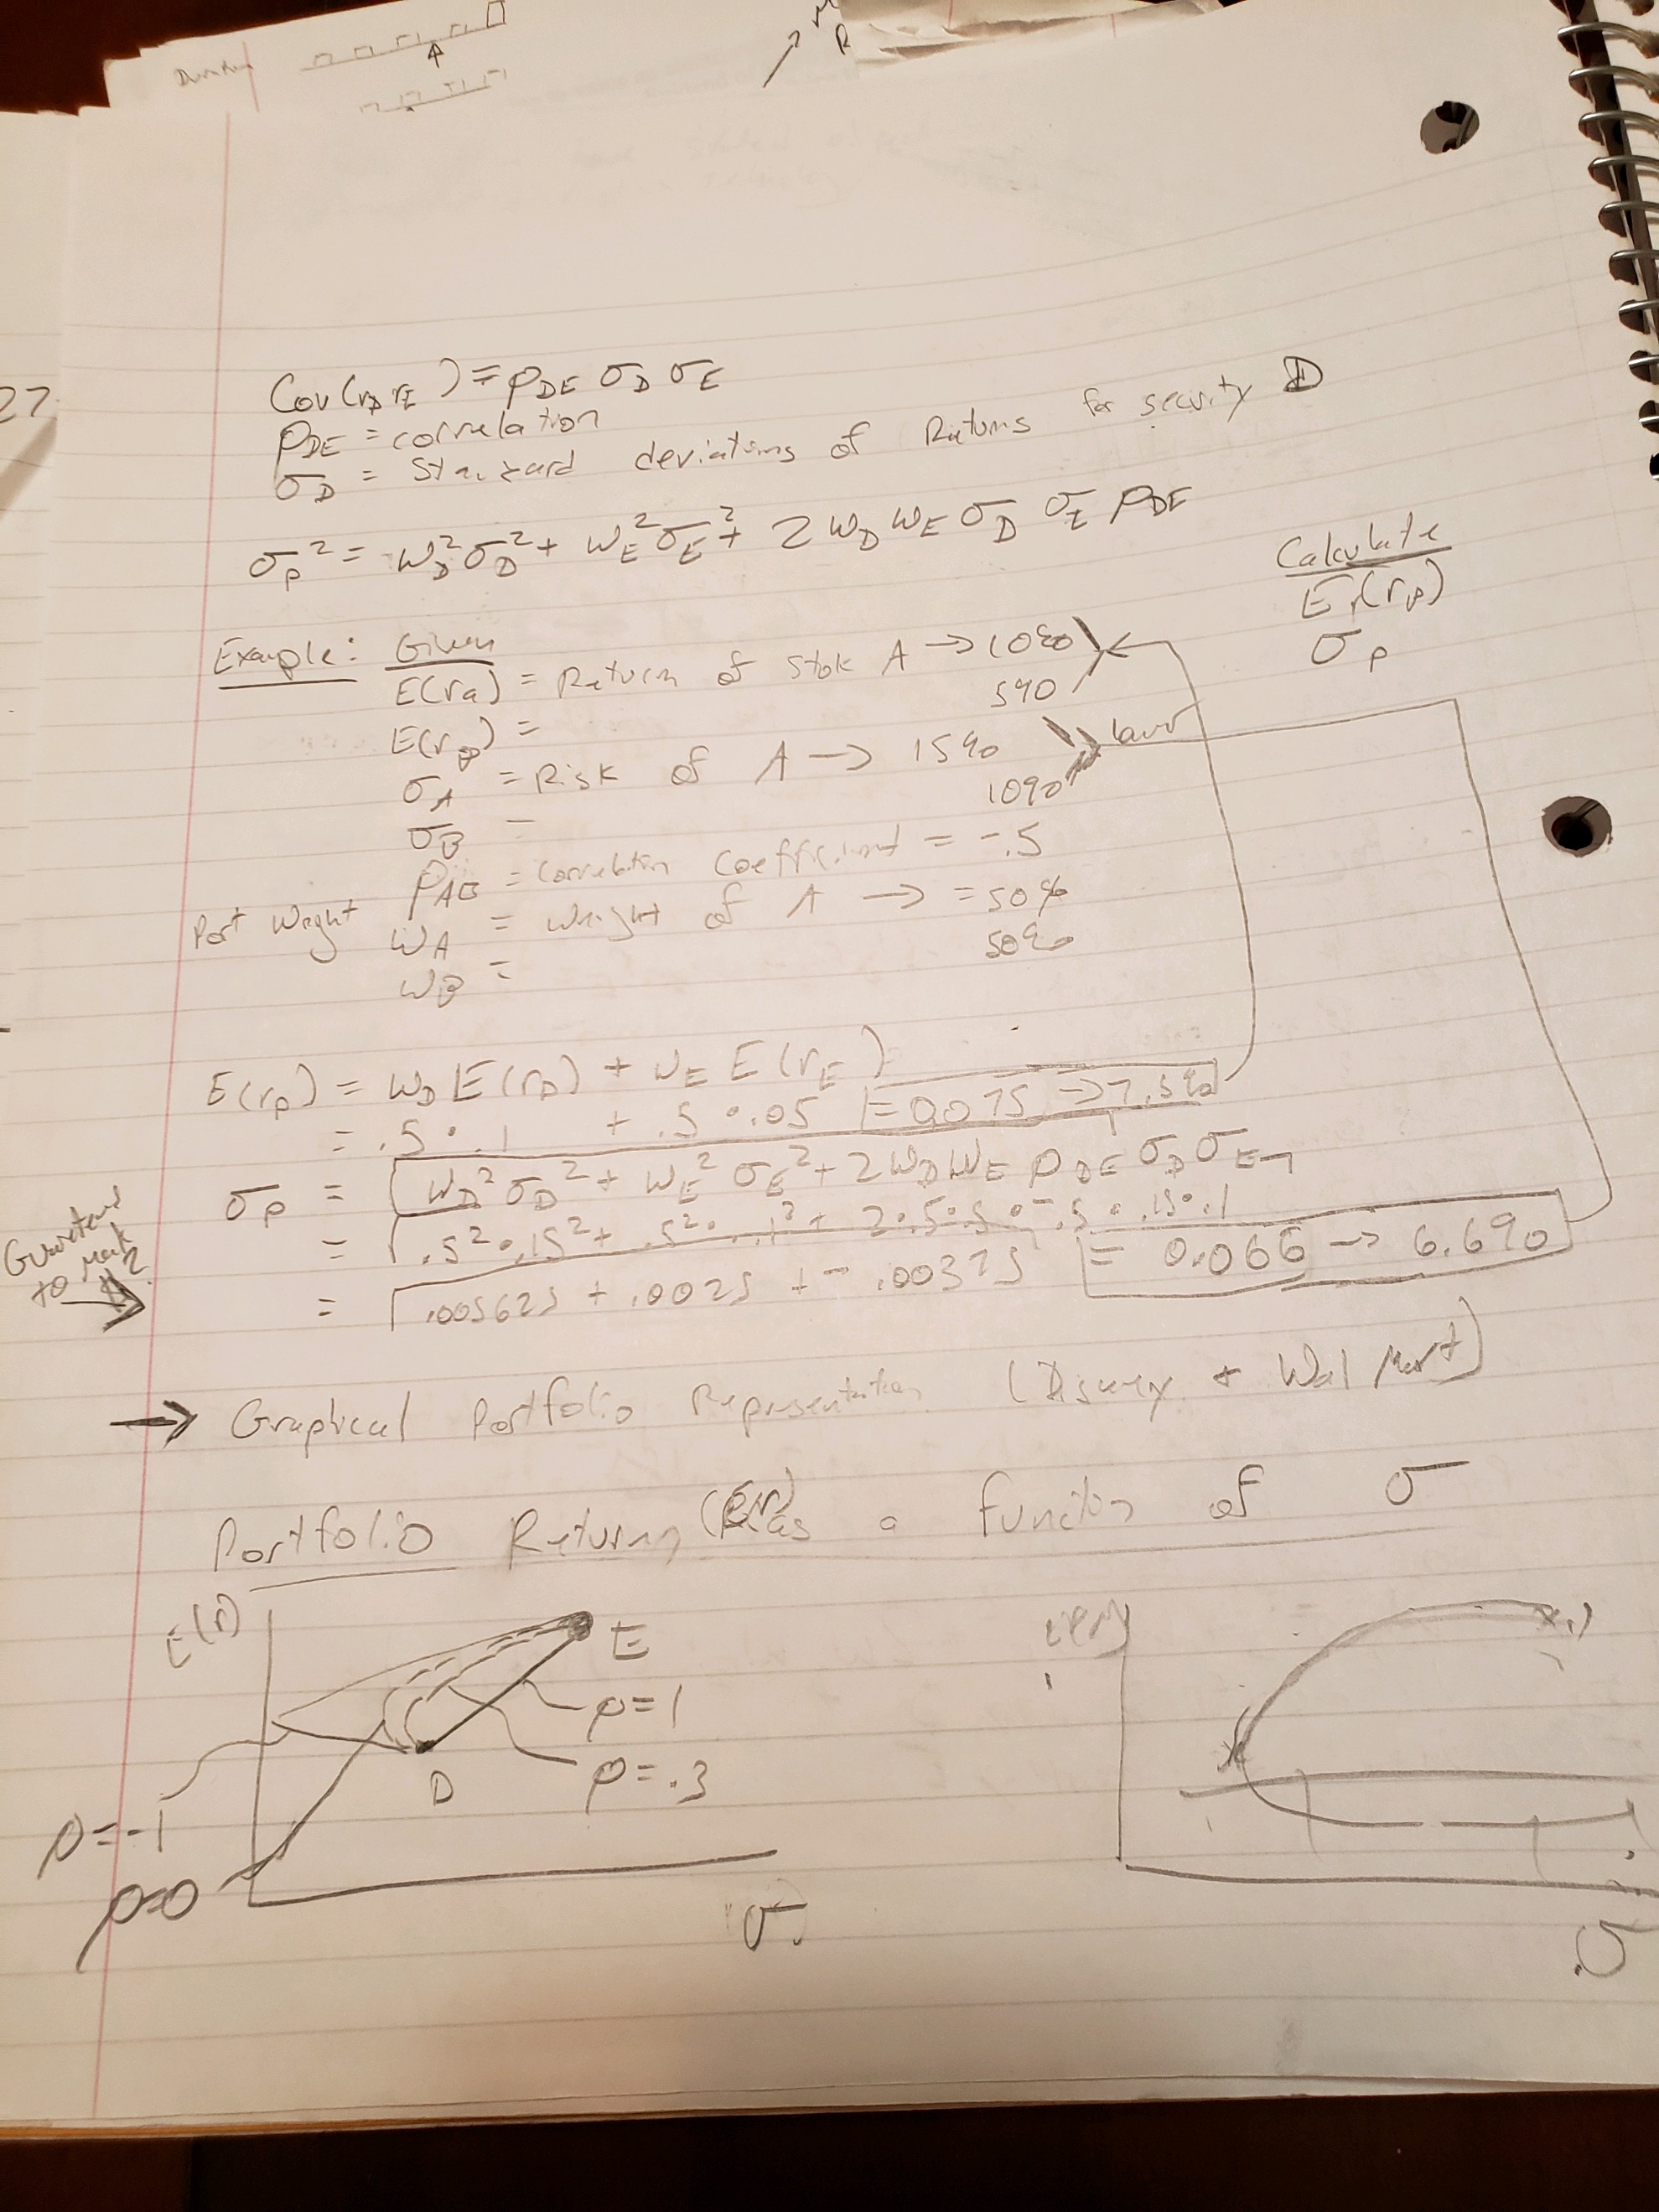 Duration
R
27
Cov(rD rE) = ρDE σD σE
ρDE = correlation
σD = Standard deviations of Returns for security D
σp² = wD²σD² + wE²σE² + 2 wD wE σD σE ρDE
Calculate
E(rp)
σp
Example: Given
E(ra) = Return of Stok A → 10%
E(rB) = 5%
σA = Risk of A → 15%
σB = 10%
lower
ρAB = Correlation Coefficient = -.5
Port Weight wA = Weight of A → = 50%
wB = 50%
E(rp) = wD E(rD) + wE E(rE)
= .5 · .1 + .5 · .05 = 0.075 → 7.5%
σp = √wD²σD² + wE²σE² + 2wDwE ρDE σD σE
= √.5² · .15² + .5² · .1² + 2 · .5 · .5 · -.5 · .15 · .1
= √.005625 + .0025 + -.00375 = 0.066 → 6.6%
to
→ Graphical Portfolio Representation (Disney + Wal Mart)
Portfolio Returns as a function of σ
E(r)
E
ρ=1
ρ=.3
D
ρ=-1
ρ=0
σ
σ